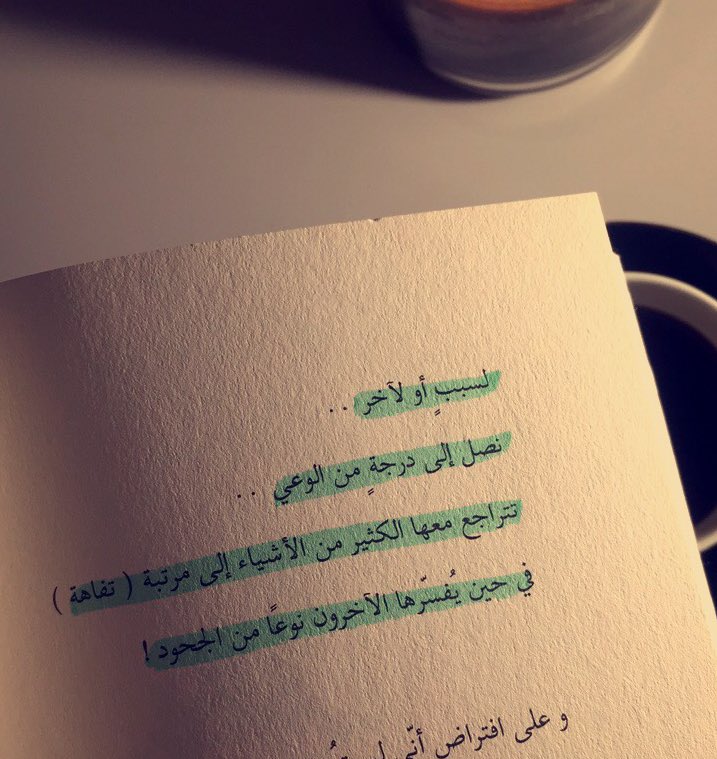 لسببٍ أو لآخر ..
نصل إلى درجةٍ من الوعي ..
تتراجع معها الكثير من الأشياء إلى مرتبة ( تفاهة )
في حين يُفسّرها الآخرون نوعاً من الجحود !
و على افتراض أنّي